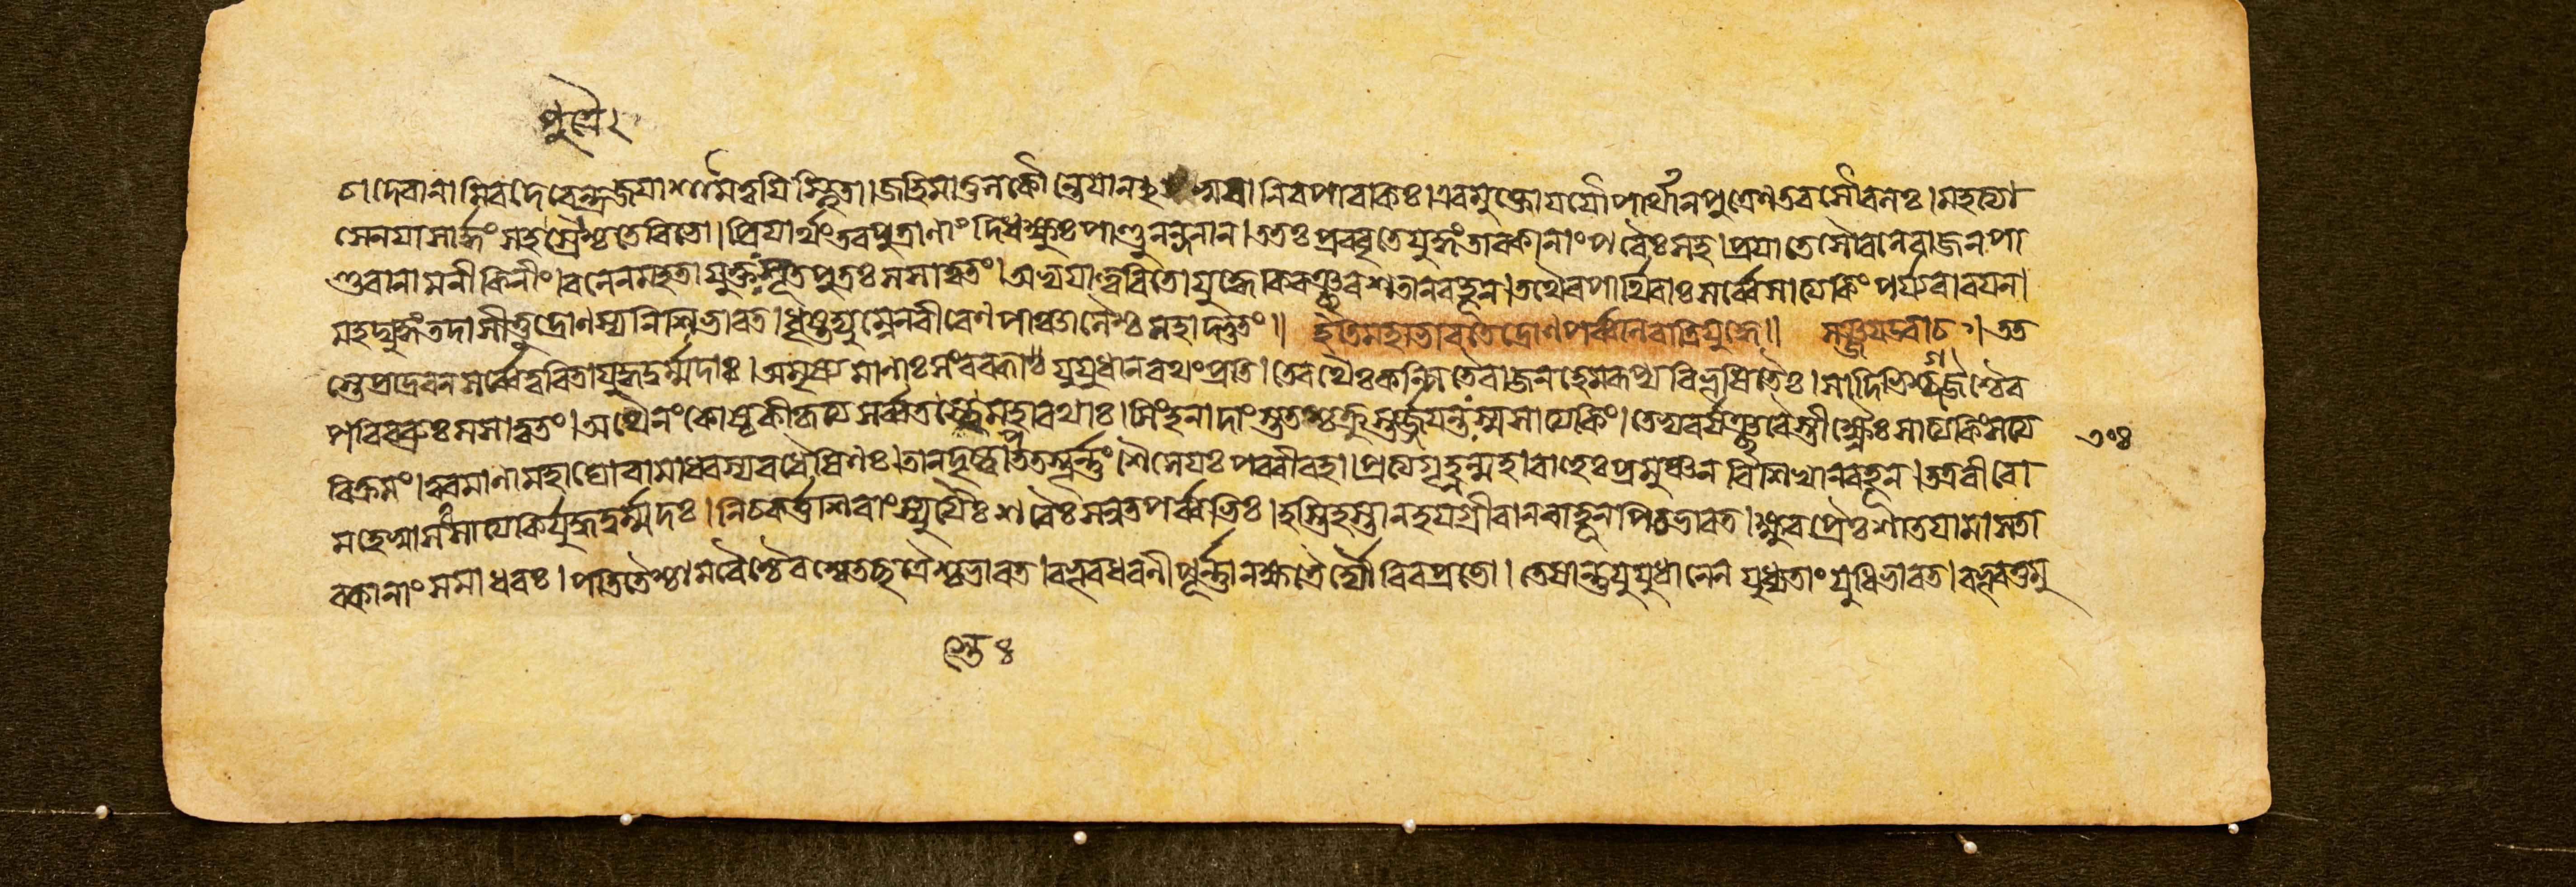 পুত্রৈ২
চ। দেবানামিব দেবেন্দ্র জয়াশা মে ত্বয়ি স্থিতা। জহি মাতুল কৌন্তেয়ান নিব পাবকিঃ। এবমুক্তো যযৌ পার্থান পুত্রেণ তব সৌবলঃ। মহত্যা
সেনয়া সার্দ্ধং সহ শ্চ তে বিভো। প্রিয়ার্থং তব পুত্রাণাং দিধক্ষুঃ পাণ্ডুনন্দনান। ততঃ প্রববৃতে যুদ্ধং তাবকানাং পরৈঃ সহ। প্রয়াতে সৌবলে রাজন পা
ণ্ডবানামনীকিনীং। বলেন মহতা যুক্তঃ সূতপুত্রঃ সমাবৃতং। অভ্যয়াত্ত্বরিতো যুদ্ধে কিরঞ্ছরশতান বহূন। তথৈব পার্থিবাঃ সর্ব্বে সাত্যকিং পর্য্যবারয়ন।
মহদ্যুদ্ধং তদাসীত্তু দ্রোণস্য নিশি ভারত। ধৃষ্টদ্যুম্নেন বীরেণ পাঞ্চালৈশ্চ মহাদ্ভুতং॥ ইতি মহাভারতে দ্রোণপর্ব্বনি রাত্রিযুদ্ধে॥ সঞ্জয় উবাচ। তত
স্তে প্রাদ্রবন সর্ব্বে ত্বরিতা যুদ্ধদুর্ম্মদাঃ। অমৃষ্যমাণাঃ সংরব্ধা যুযুধানরথং প্রতি। তে রথৈঃ কল্পিতৈ রাজন হেমরূপ্যবিভূষিতৈঃ। সাদিভিশ্চ গজৈশ্চৈব
পরিবব্রুঃ সমাবৃতং। অথৈনং কোষ্ঠকীকৃত্য সর্ব্বতস্তে মহারথাঃ। সিংহনাদাংস্ততশ্চক্রুস্তর্জ্জয়ন্তঃ স্ম সাত্যকিং। তেভ্যবর্ষঞ্ছরৈস্তীক্ষ্ণৈঃ সাত্যকিং সত্য
বিক্রমং। ত্বরমাণা মহাঘোরা মাধবস্য বধৈষিণঃ। তান দৃষ্ট্বা পততস্তূর্ন্নং শৈনেয়ঃ পরবীরহা। প্রত্যগৃহ্ণন্মহাবাহুঃ প্রমুঞ্চন বিশিখান বহূন। তত্র বীরো
মহেষ্বাসঃ সাত্যকির্যুদ্ধদুর্ম্মদঃ। নিচকর্ত্ত শিরাংস্যুগ্রৈঃ শরৈঃ সন্নতপর্ব্বভিঃ। হস্তিহস্তান হয়গ্রীবান বাহূনপি চ ভারত। ক্ষুরপ্রৈঃ শাতয়ামাস তা
বকানাং স মাধবঃ। পতিতৈশ্চামরৈশ্চৈব শ্বেতচ্ছত্রৈশ্চ ভারত। বভূব ধরণী পূর্ন্না নক্ষত্রৈর্দ্যৌরিব প্রভো। তেষান্তু যুযুধানেন যুধ্যতাং যুধি ভারত। বভূব তুমু
স্তেঃ